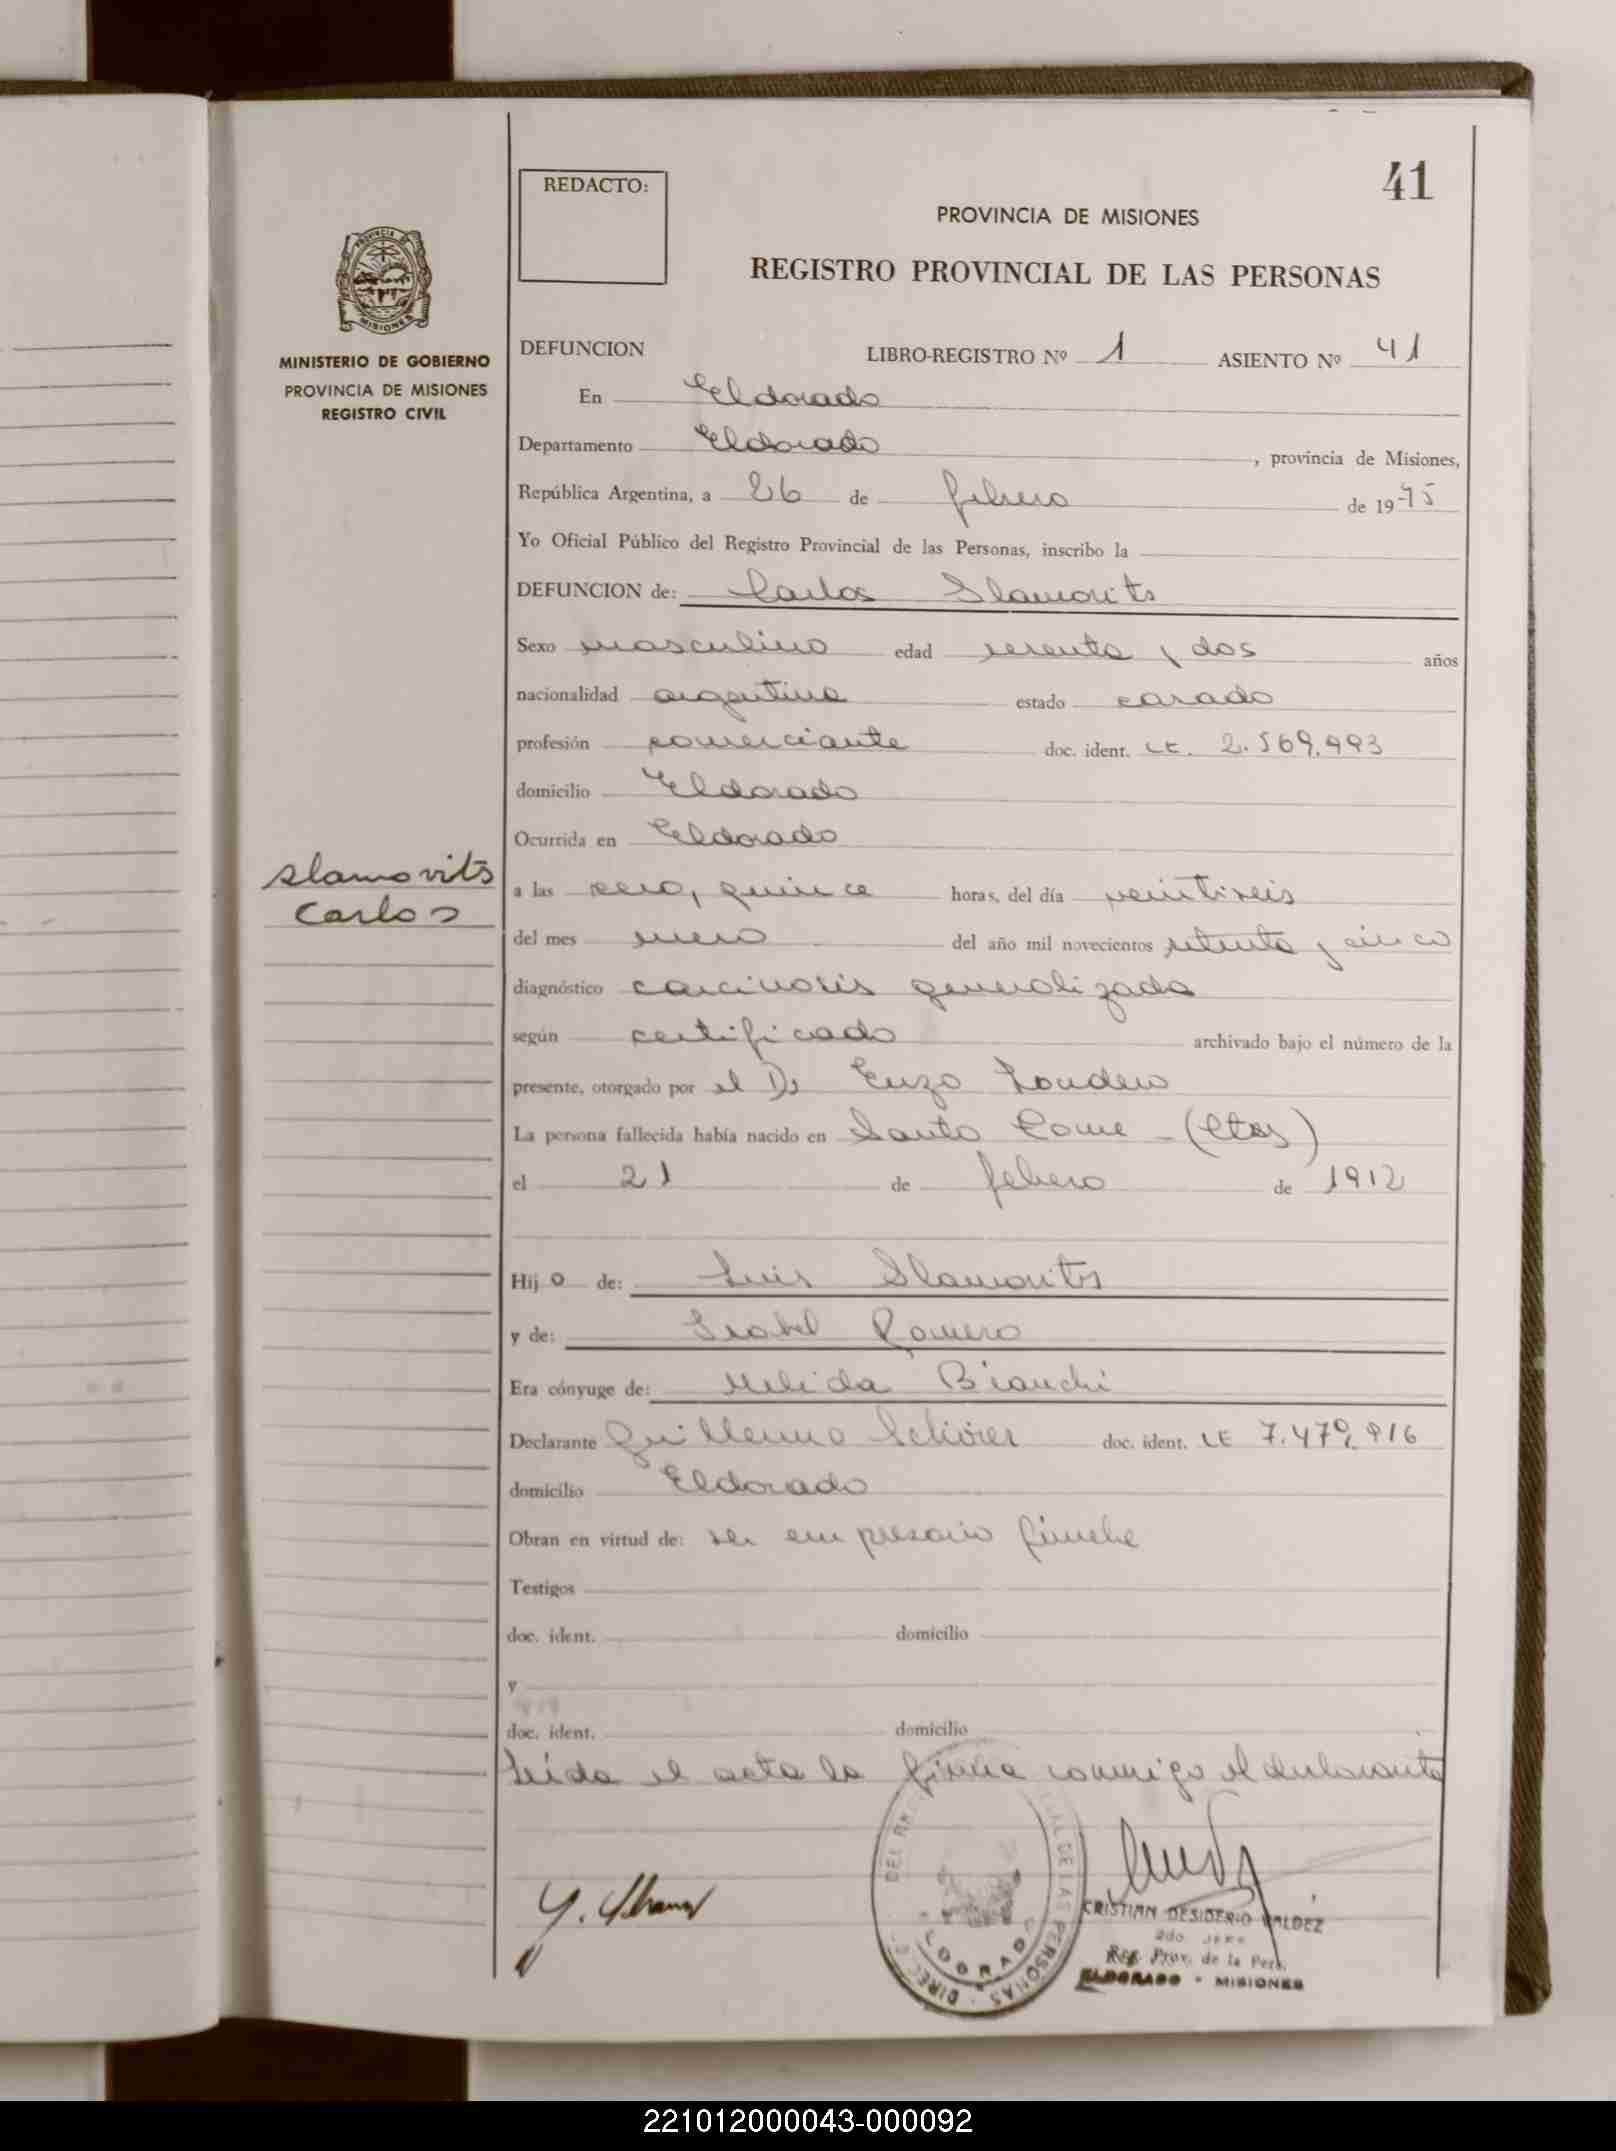 41
REDACTO:
PROVINCIA DE MISIONES
REGISTRO PROVINCIAL DE LAS PERSONAS
PROVINCIA DE
MISIONES
MINISTERIO DE GOBIERNO
PROVINCIA DE MISIONES
REGISTRO CIVIL
DEFUNCION LIBRO-REGISTRO Nº 1 ASIENTO Nº 41
En Eldorado
Departamento Eldorado, provincia de Misiones,
República Argentina, a 26 de febrero de 1975
Yo Oficial Público del Registro Provincial de las Personas, inscribo la
DEFUNCION de: Carlos Slamovits
Sexo masculino edad sesenta y dos años
nacionalidad argentina estado casado
profesión comerciante doc. ident. LE. 2.569.993
domicilio Eldorado
Ocurrida en Eldorado
Slamovits
Carlos
a las cero, quince horas, del día veintiseis
del mes enero del año mil novecientos setenta y cinco
diagnóstico carcinosis generalizada
según certificado archivado bajo el número de la
presente, otorgado por el Dr Enzo Londero
La persona fallecida había nacido en Santo Tome - (Ctes)
el 21 de febrero de 1912
Hijo de: Luis Slamovits
y de: Isabel Romero
Era cónyuge de: Nelida Bianchi
Declarante Guillermo doc. ident. LE 7.479.916
domicilio Eldorado
Obran en virtud de: ser empresario fúnebre
Testigos
doc. ident. domicilio
y
doc. ident. domicilio
Leida el acta la firma conmigo el declarante
CRISTIAN DESIDERIO VALDEZ
2do. JEFE
Reg. Prov. de la Pers.
ELDORADO - MISIONES
221012000043-000092